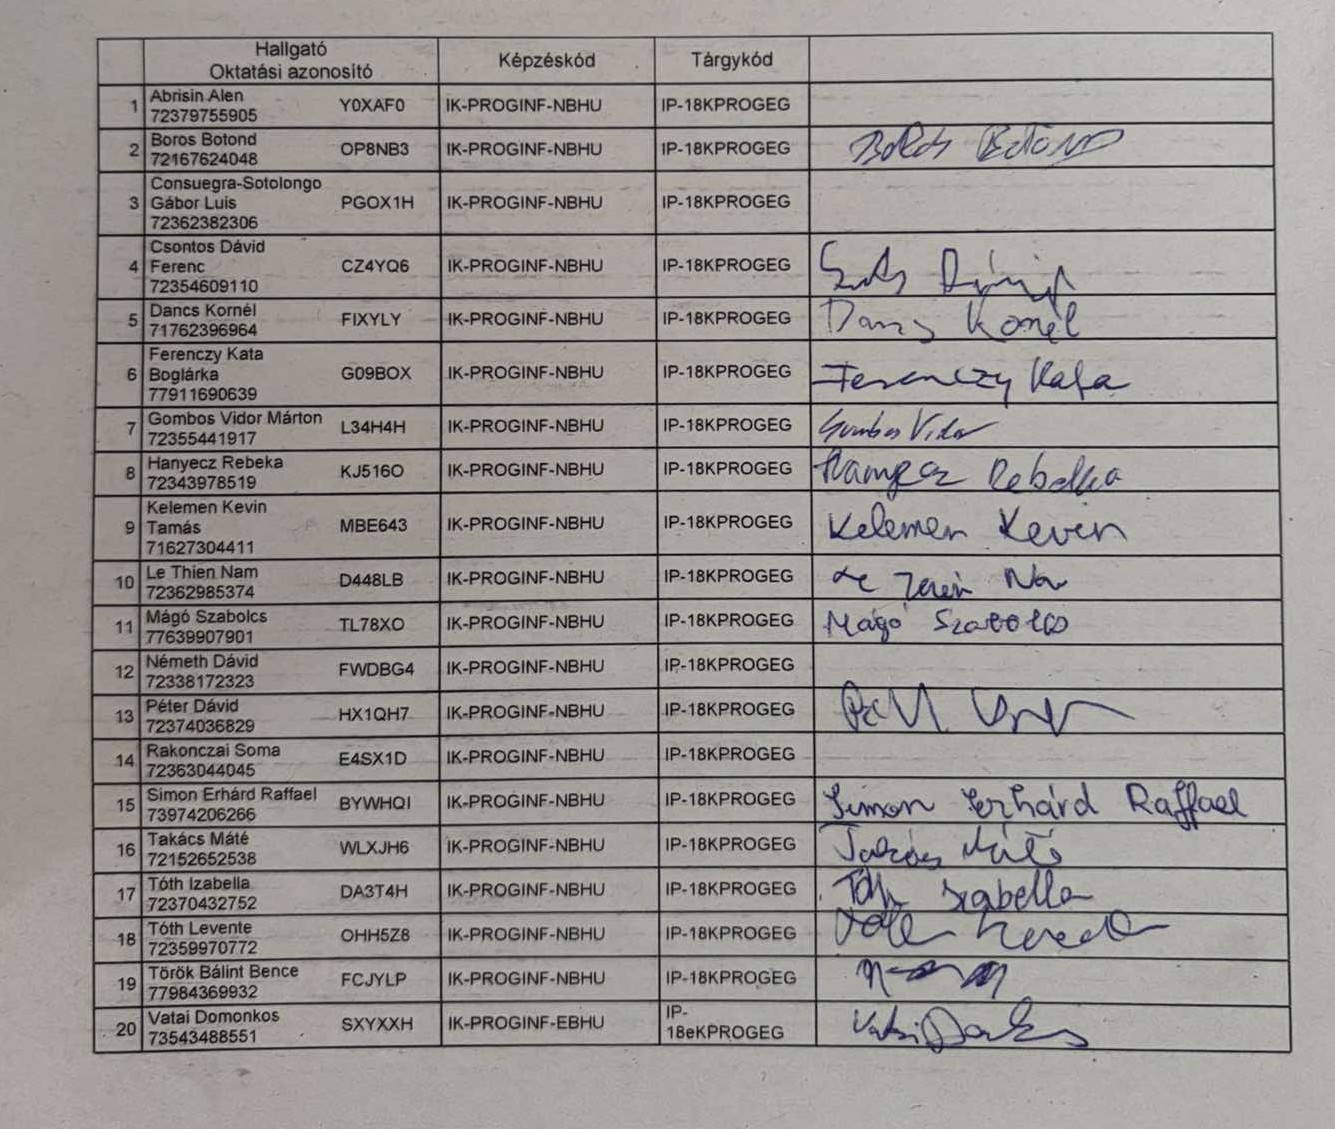 Hallgató
Oktatási azonosító Képzéskód Tárgykód
1 Abrisin Alen
72379755905 Y0XAF0 IK-PROGINF-NBHU IP-18KPROGEG
2 Boros Botond
72167624048 OP8NB3 IK-PROGINF-NBHU IP-18KPROGEG Boros Botond
3 Consuegra-Sotolongo
Gábor Luis
72362382306 PGOX1H IK-PROGINF-NBHU IP-18KPROGEG
4 Csontos Dávid
Ferenc
72354609110 CZ4YQ6 IK-PROGINF-NBHU IP-18KPROGEG
5 Dancs Kornél
71762396964 FIXYLY IK-PROGINF-NBHU IP-18KPROGEG Dancs Kornél
6 Ferenczy Kata
Boglárka
77911690639 G09BOX IK-PROGINF-NBHU IP-18KPROGEG Ferenczy Kata
7 Gombos Vidor Márton
72355441917 L34H4H IK-PROGINF-NBHU IP-18KPROGEG Gombos Vidor
8 Hanyecz Rebeka
72343978519 KJ516O IK-PROGINF-NBHU IP-18KPROGEG Hanyecz Rebeka
9 Kelemen Kevin
Tamás
71627304411 MBE643 IK-PROGINF-NBHU IP-18KPROGEG Kelemen Kevin
10 Le Thien Nam
72362985374 D448LB IK-PROGINF-NBHU IP-18KPROGEG Le
11 Mágó Szabolcs
77639907901 TL78XO IK-PROGINF-NBHU IP-18KPROGEG Mágó Szabolcs
12 Németh Dávid
72338172323 FWDBG4 IK-PROGINF-NBHU IP-18KPROGEG
13 Péter Dávid
72374036829 HX1QH7 IK-PROGINF-NBHU IP-18KPROGEG
14 Rakonczai Soma
72363044045 E4SX1D IK-PROGINF-NBHU IP-18KPROGEG
15 Simon Erhárd Raffael
73974206266 BYWHQI IK-PROGINF-NBHU IP-18KPROGEG Simon Erhárd Raffael
16 Takács Máté
72152652538 WLXJH6 IK-PROGINF-NBHU IP-18KPROGEG Takács Máté
17 Tóth Izabella
72370432752 DA3T4H IK-PROGINF-NBHU IP-18KPROGEG Tóth Izabella
18 Tóth Levente
72359970772 OHH5Z8 IK-PROGINF-NBHU IP-18KPROGEG
19 Török Bálint Bence
77984369932 FCJYLP IK-PROGINF-NBHU IP-18KPROGEG
20 Vatai Domonkos
73543488551 SXYXXH IK-PROGINF-EBHU IP-
18eKPROGEG